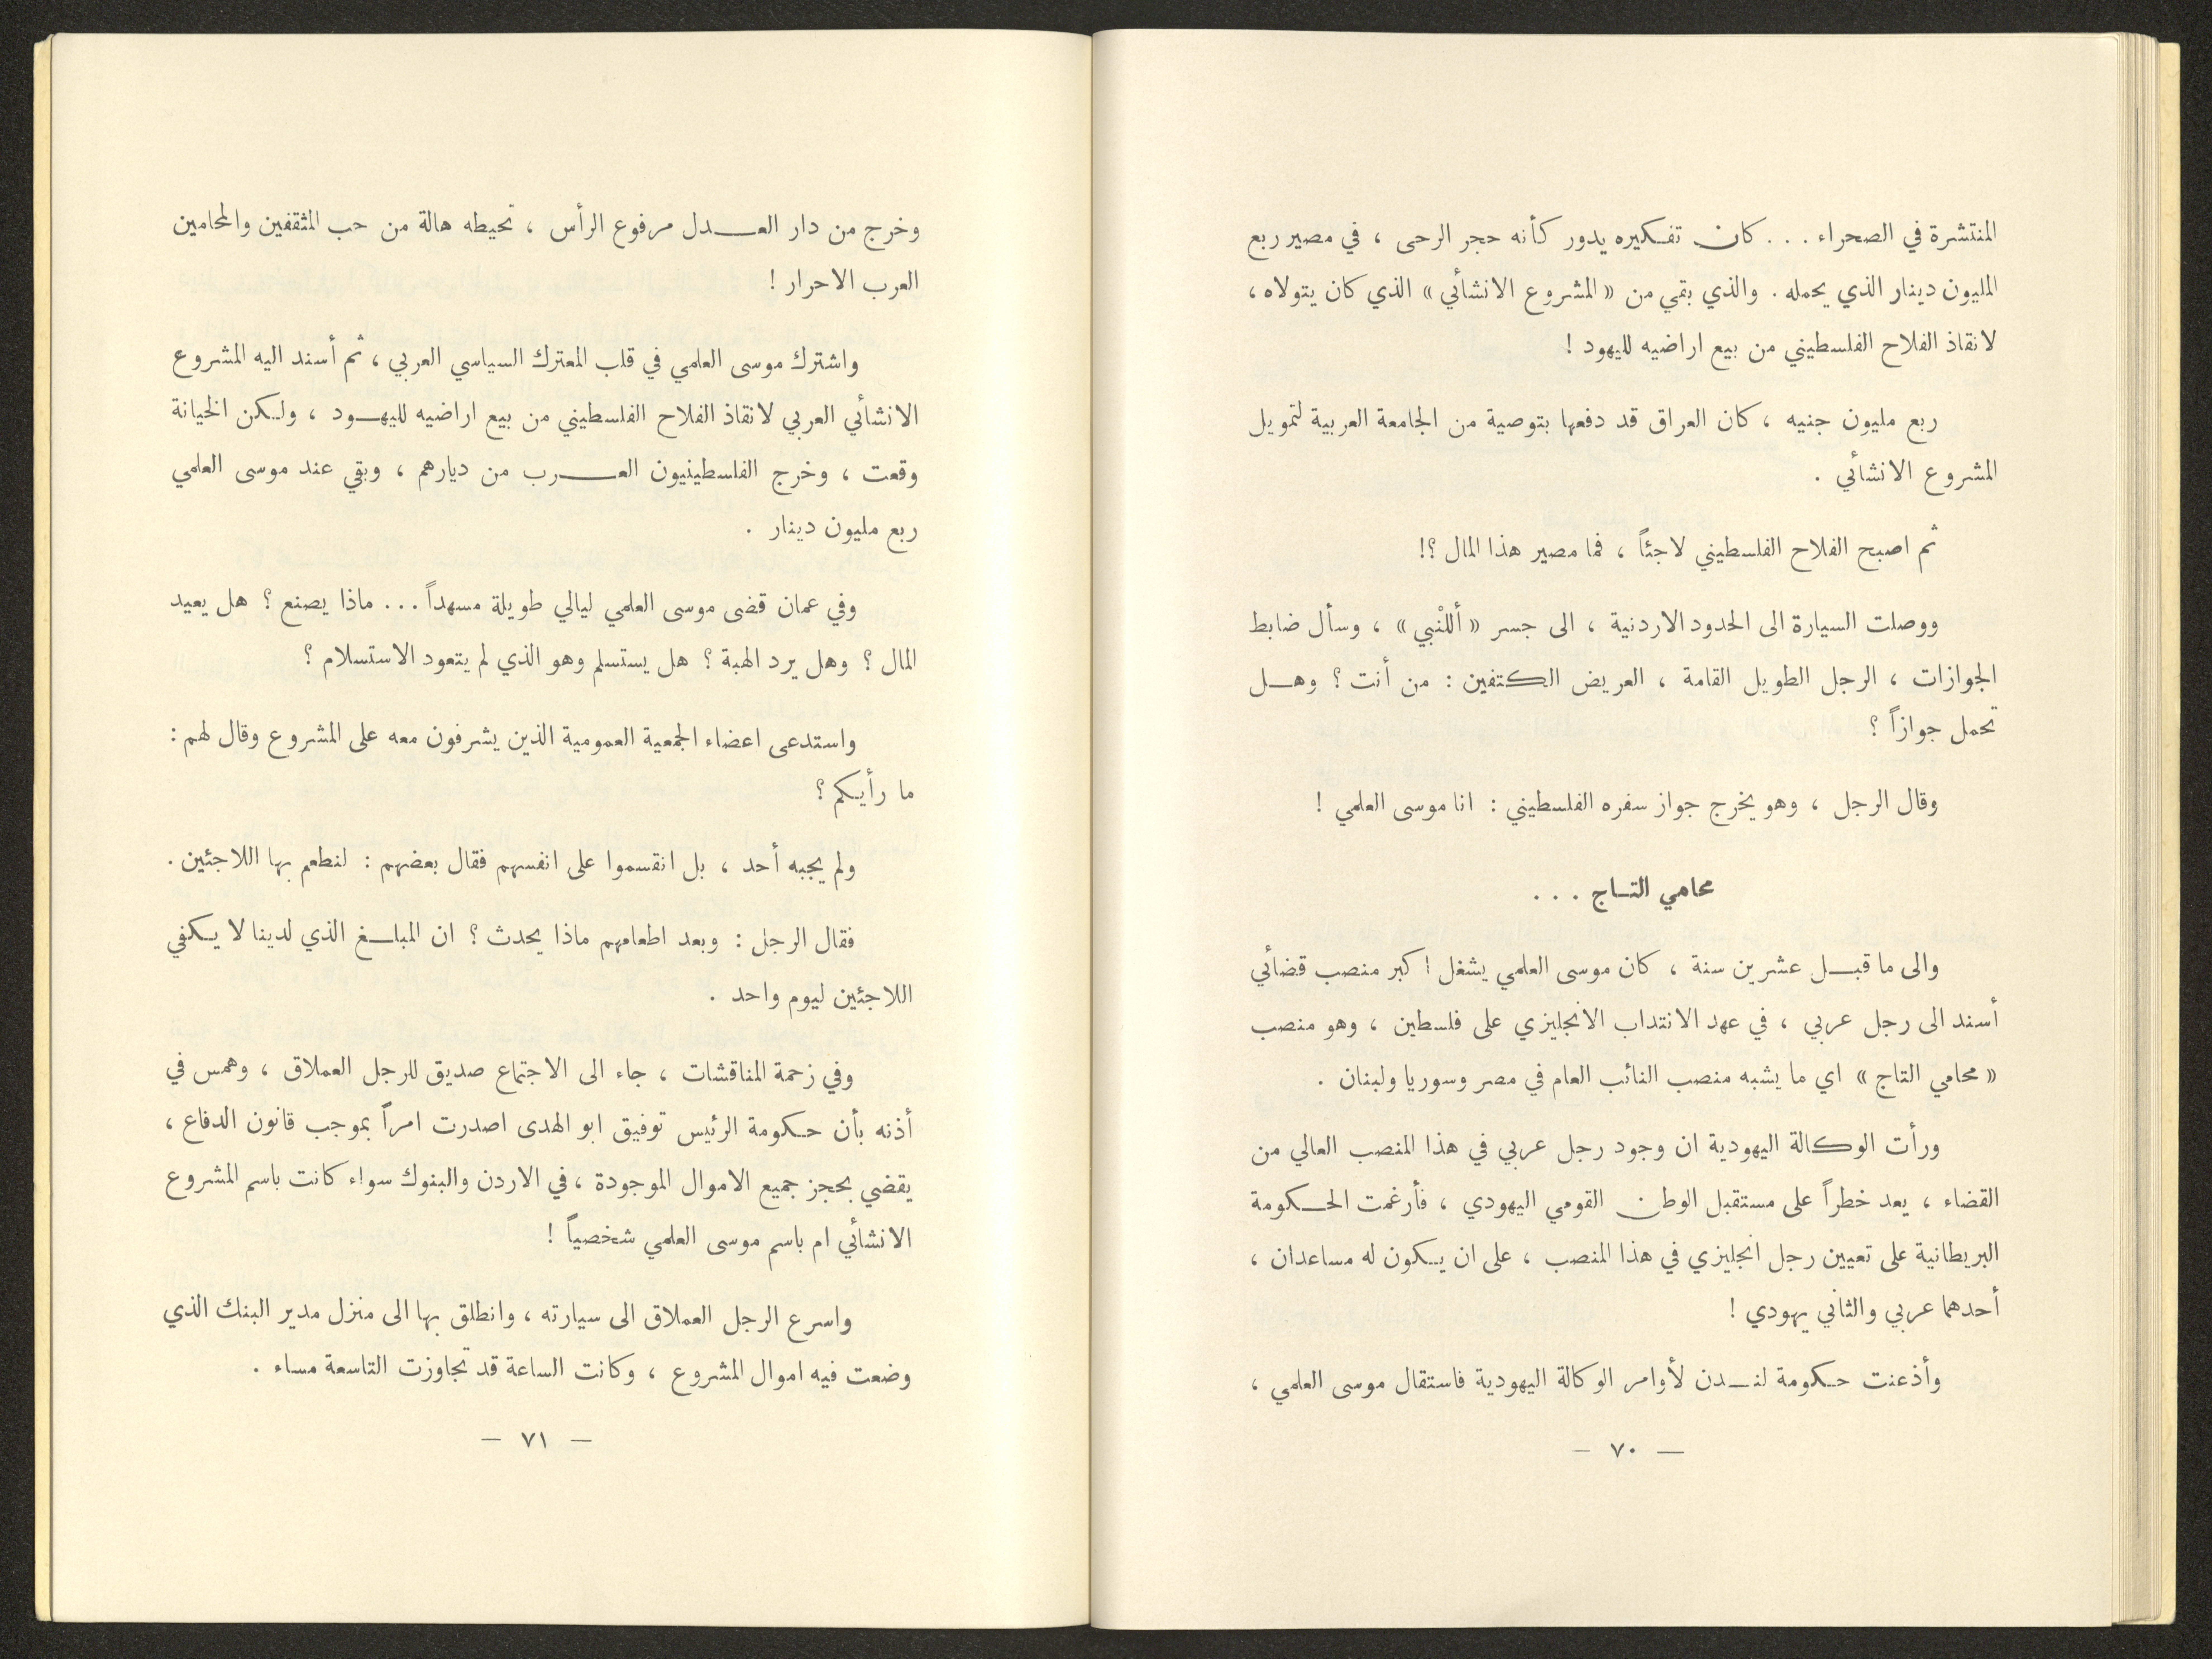 المنتشرة في الصحراء . . . كان تفكيره يدور كأنه حجر الرحى ، في مصير ربع
المليون دينار الذي يحمله . والذي بقي من « المشروع الانشائي » الذي كان يتولاه ،
لانقاذ الفلاح الفلسطيني من بيع اراضيه لليهود !
ربع مليون جنيه ، كان العراق قد دفعها بتوصية من الجامعة العربية لتمويل
المشروع الانشائي .
ثم اصبح الفلاح الفلسطيني لاجئاً ، فما مصير هذا المال ؟!
ووصلت السيارة الى الحدود الاردنية ، الى جسر « أللنْبي » ، وسأل ضابط
الجوازات ، الرجل الطويل القامة ، العريض الكتفين : من أنت ؟ وهل
تحمل جوازاً ؟
وقال الرجل ، وهو يخرج جواز سفره الفلسطيني : انا موسى العلمي !
محامي التاج . . .
والى ما قبل عشرين سنة ، كان موسى العلمي يشغل اكبر منصب قضائي
أسند الى رجل عربي ، في عهد الانتداب الانجليزي على فلسطين ، وهو منصب
« محامي التاج » اي ما يشبه منصب النائب العام في مصر وسوريا ولبنان .
ورأت الوكالة اليهودية ان وجود رجل عربي في هذا المنصب العالي من
القضاء ، يعد خطراً على مستقبل الوطن القومي اليهودي ، فأرغمت الحكومة
البريطانية على تعيين رجل انجليزي في هذا المنصب ، على ان يكون له مساعدان ،
أحدهما عربي والثاني يهودي !
وأذعنت حكومة لندن لأوامر الوكالة اليهودية فاستقال موسى العلمي ،
— ٧٠ —
وخرج من دار العدل مرفوع الرأس ، تحيطه هالة من حب المثقفين والمحامين
العرب الاحرار !
واشترك موسى العلمي في قلب المعترك السياسي العربي ، ثم أسند اليه المشروع
الانشائي العربي لانقاذ الفلاح الفلسطيني من بيع اراضيه لليهود ، ولكن الخيانة
وقعت ، وخرج الفلسطينيون العرب من ديارهم ، وبقي عند موسى العلمي
ربع مليون دينار .
وفي عمان قضى موسى العلمي ليالي طويلة مسهداً ... ماذا يصنع ؟ هل يعيد
المال ؟ وهل يرد الهبة ؟ هل يستسلم وهو الذي لم يتعود الاستسلام ؟
واستدعى اعضاء الجمعية العمومية الذين يشرفون معه على المشروع وقال لهم :
ما رأيكم ؟
ولم يجبه أحد ، بل انقسموا على انفسهم فقال بعضهم : لنطعم بها اللاجئين .
فقال الرجل : وبعد اطعامهم ماذا يحدث ؟ ان المبلغ الذي لدينا لا يكفي
اللاجئين ليوم واحد .
وفي زحمة المناقشات ، جاء الى الاجتماع صديق للرجل العملاق ، وهمس في
أذنه بأن حكومة الرئيس توفيق ابو الهدى اصدرت امراً بموجب قانون الدفاع ،
يقضي بحجز جميع الاموال الموجودة ، في الاردن والبنوك سواء كانت باسم المشروع
الانشائي ام باسم موسى العلمي شخصياً !
واسرع الرجل العملاق الى سيارته ، وانطلق بها الى منزل مدير البنك الذي
وضعت فيه اموال المشروع ، وكانت الساعة قد تجاوزت التاسعة مساء .
— ٧١ —